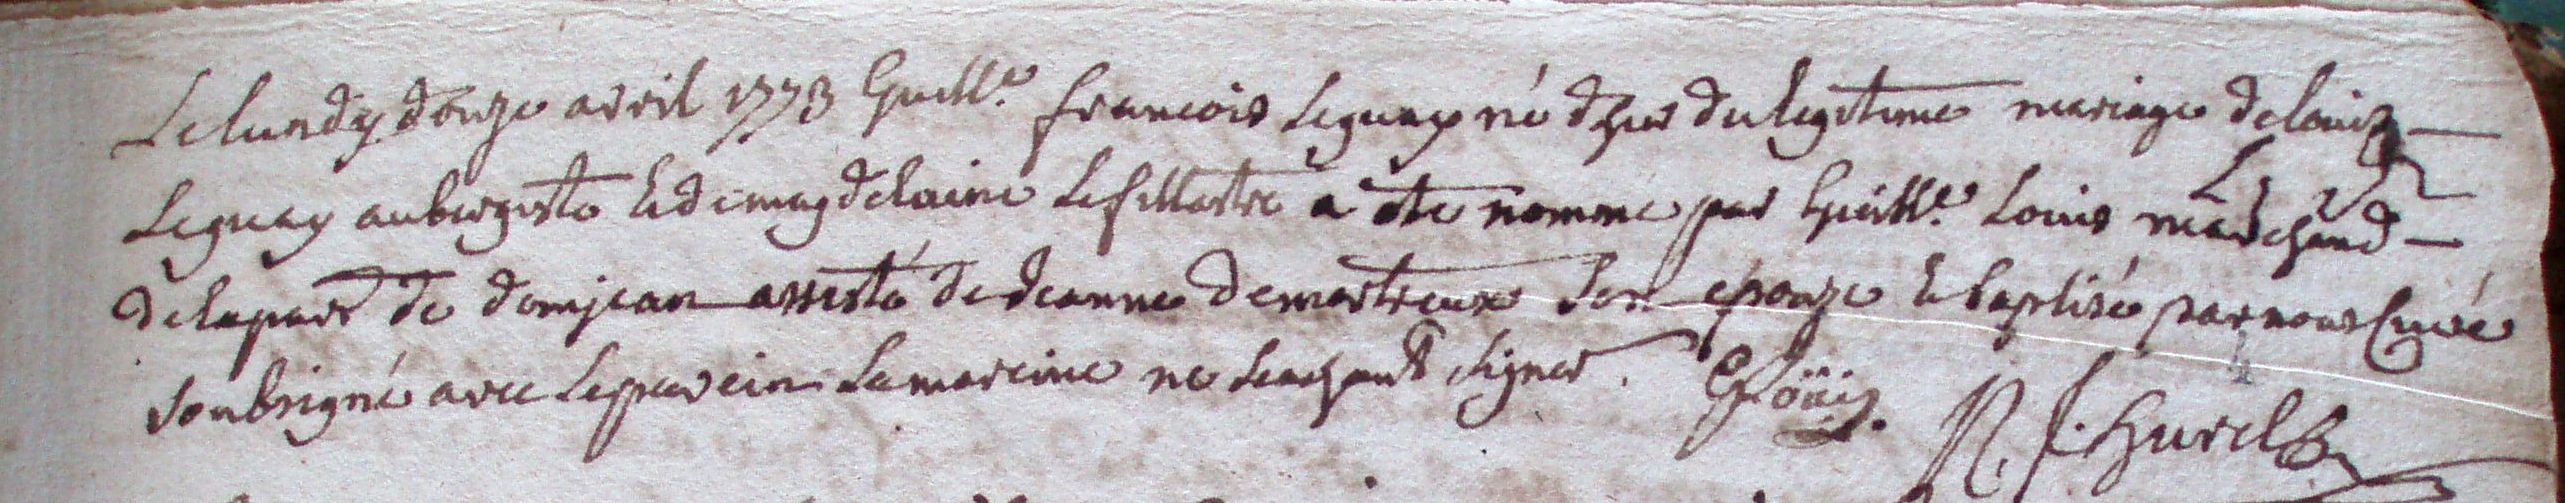 Le lundy douze avril 1773 Guill.e francois Leguay né dhier du legitime mariage de louis
Leguay aubergiste & de magdelaine Lefillastre a ete nomme par Guill.e Louis marchand
de la parr de domjean assisté de Jeanne Demortreux Son epouze & baptisé par nous Curé
soubsigné avec le parein La mareine ne scachant signer . G Loüis.
N. f. hurel